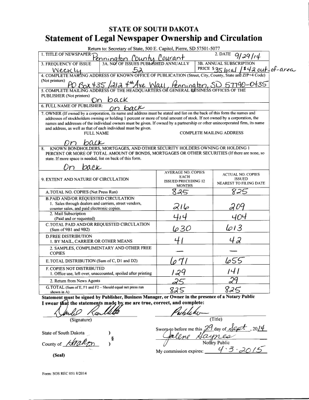 STATE OF SOUTH DAKOTA
Statement of Legal Newspaper Ownership and Circulation
Return to: Secretary of State, 500 E. Capitol, Pierre, SD 57501-5077
1. TITLE OF NEWSPAPER Pennington County Courant 2. DATE 9/29/14
3. FREQUENCY OF ISSUE Weekly
3A. NO. OF ISSUES PUBLISHED ANNUALLY 52
3B. ANNUAL SUBSCRIPTION PRICE $35 local $42 out-of-area
4. COMPLETE MAILING ADDRESS OF KNOWN OFFICE OF PUBLICATION (Street, City, County, State and ZIP+4 Code)
(Not printers) PO Box 435 Wall, Pennington, SD 57790-0435
5. COMPLETE MAILING ADDRESS OF THE HEADQUARTERS OF GENERAL BUSINESS OFFICES OF THE
PUBLISHER (Not printers) on back
6. FULL NAME OF PUBLISHER: on back
7. OWNER (If owned by a corporation, its name and address must be stated and too on the back of this form the names and
addresses of stockholders owning or holding 1 percent or more of total amount of stock. If not owned by a corporation, the
names and addresses of the individual owners must be given. If owned by a partnership or other unincorporated firm, its name
and address, as well as that of each individual must be given.
FULL NAME COMPLETE MAILING ADDRESS
on back
8. KNOWN BONDHOLDERS, MORTGAGES, AND OTHER SECURITY HOLDERS OWNING OR HOLDING 1
PERCENT OR MORE OF TOTAL AMOUNT OF BONDS, MORTGAGES OR OTHER SECURITIES (If there are none, so
state. If more space is needed, list on back of this form.
on back
9. EXTENT AND NATURE OF CIRCULATION
AVERAGE NO. COPIES EACH ISSUED PRECEDING 12 MONTHS
ACTUAL NO. COPIES ISSUED NEAREST TO FILING DATE
A.TOTAL NO. COPIES (Net Press Run) 825 825
B.PAID AND/OR REQUESTED CIRCULATION
1. Sales through dealers and carriers, street vendors, counter sales, and paid electronic copies. 216 209
2. Mail Subscription (Paid and or requested) 414 404
C.TOTAL PAID AND/OR REQUESTED CIRCULATION (Sum of 9B1 and 9B2) 630 613
D.FREE DISTRIBUTION
1. BY MAIL, CARRIER OR OTHER MEANS 41 42
2. SAMPLES, COMPLIMENTARY AND OTHER FREE COPIES — —
E.TOTAL DISTRIBUTION (Sum of C, D1 and D2) 671 655
F. COPIES NOT DISTRIBUTED
1. Office use, left over, unaccounted, spoiled after printing 129 141
2. Return from News Agents 25 29
G.TOTAL (Sum of E, F1 and F2 – Should equal net press run shown in A) 825 825
Statement must be signed by Publisher, Business Manager, or Owner in the presence of a Notary Public
I swear that the statements made by me are true, correct, and complete:
Publisher
(Signature) (Title)
State of South Dakota ) Sworn to before me this 29 day of Sept, 2014
) §
County of ) Notary Public
My commission expires: 4-3-2015
(Seal)
Form: SOS REC 051 9/2014